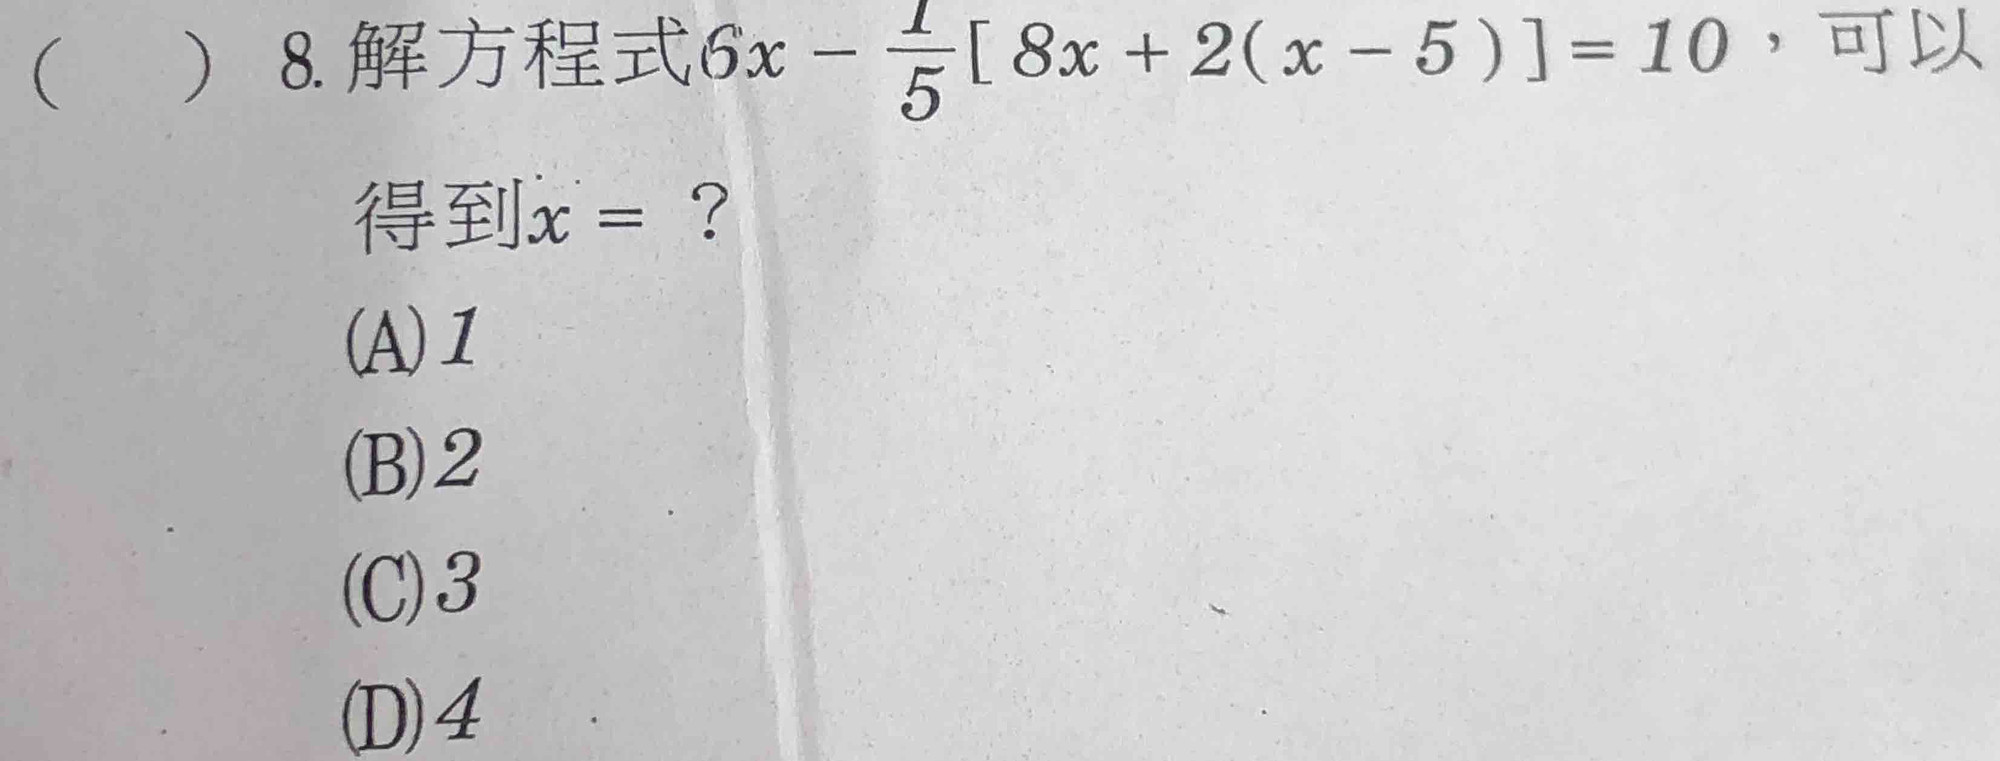 ( ) 8. 解方程式6x − 1/5[ 8x + 2( x − 5 ) ] = 10，可以
得到x = ？
(A) 1
(B) 2
(C) 3
(D) 4